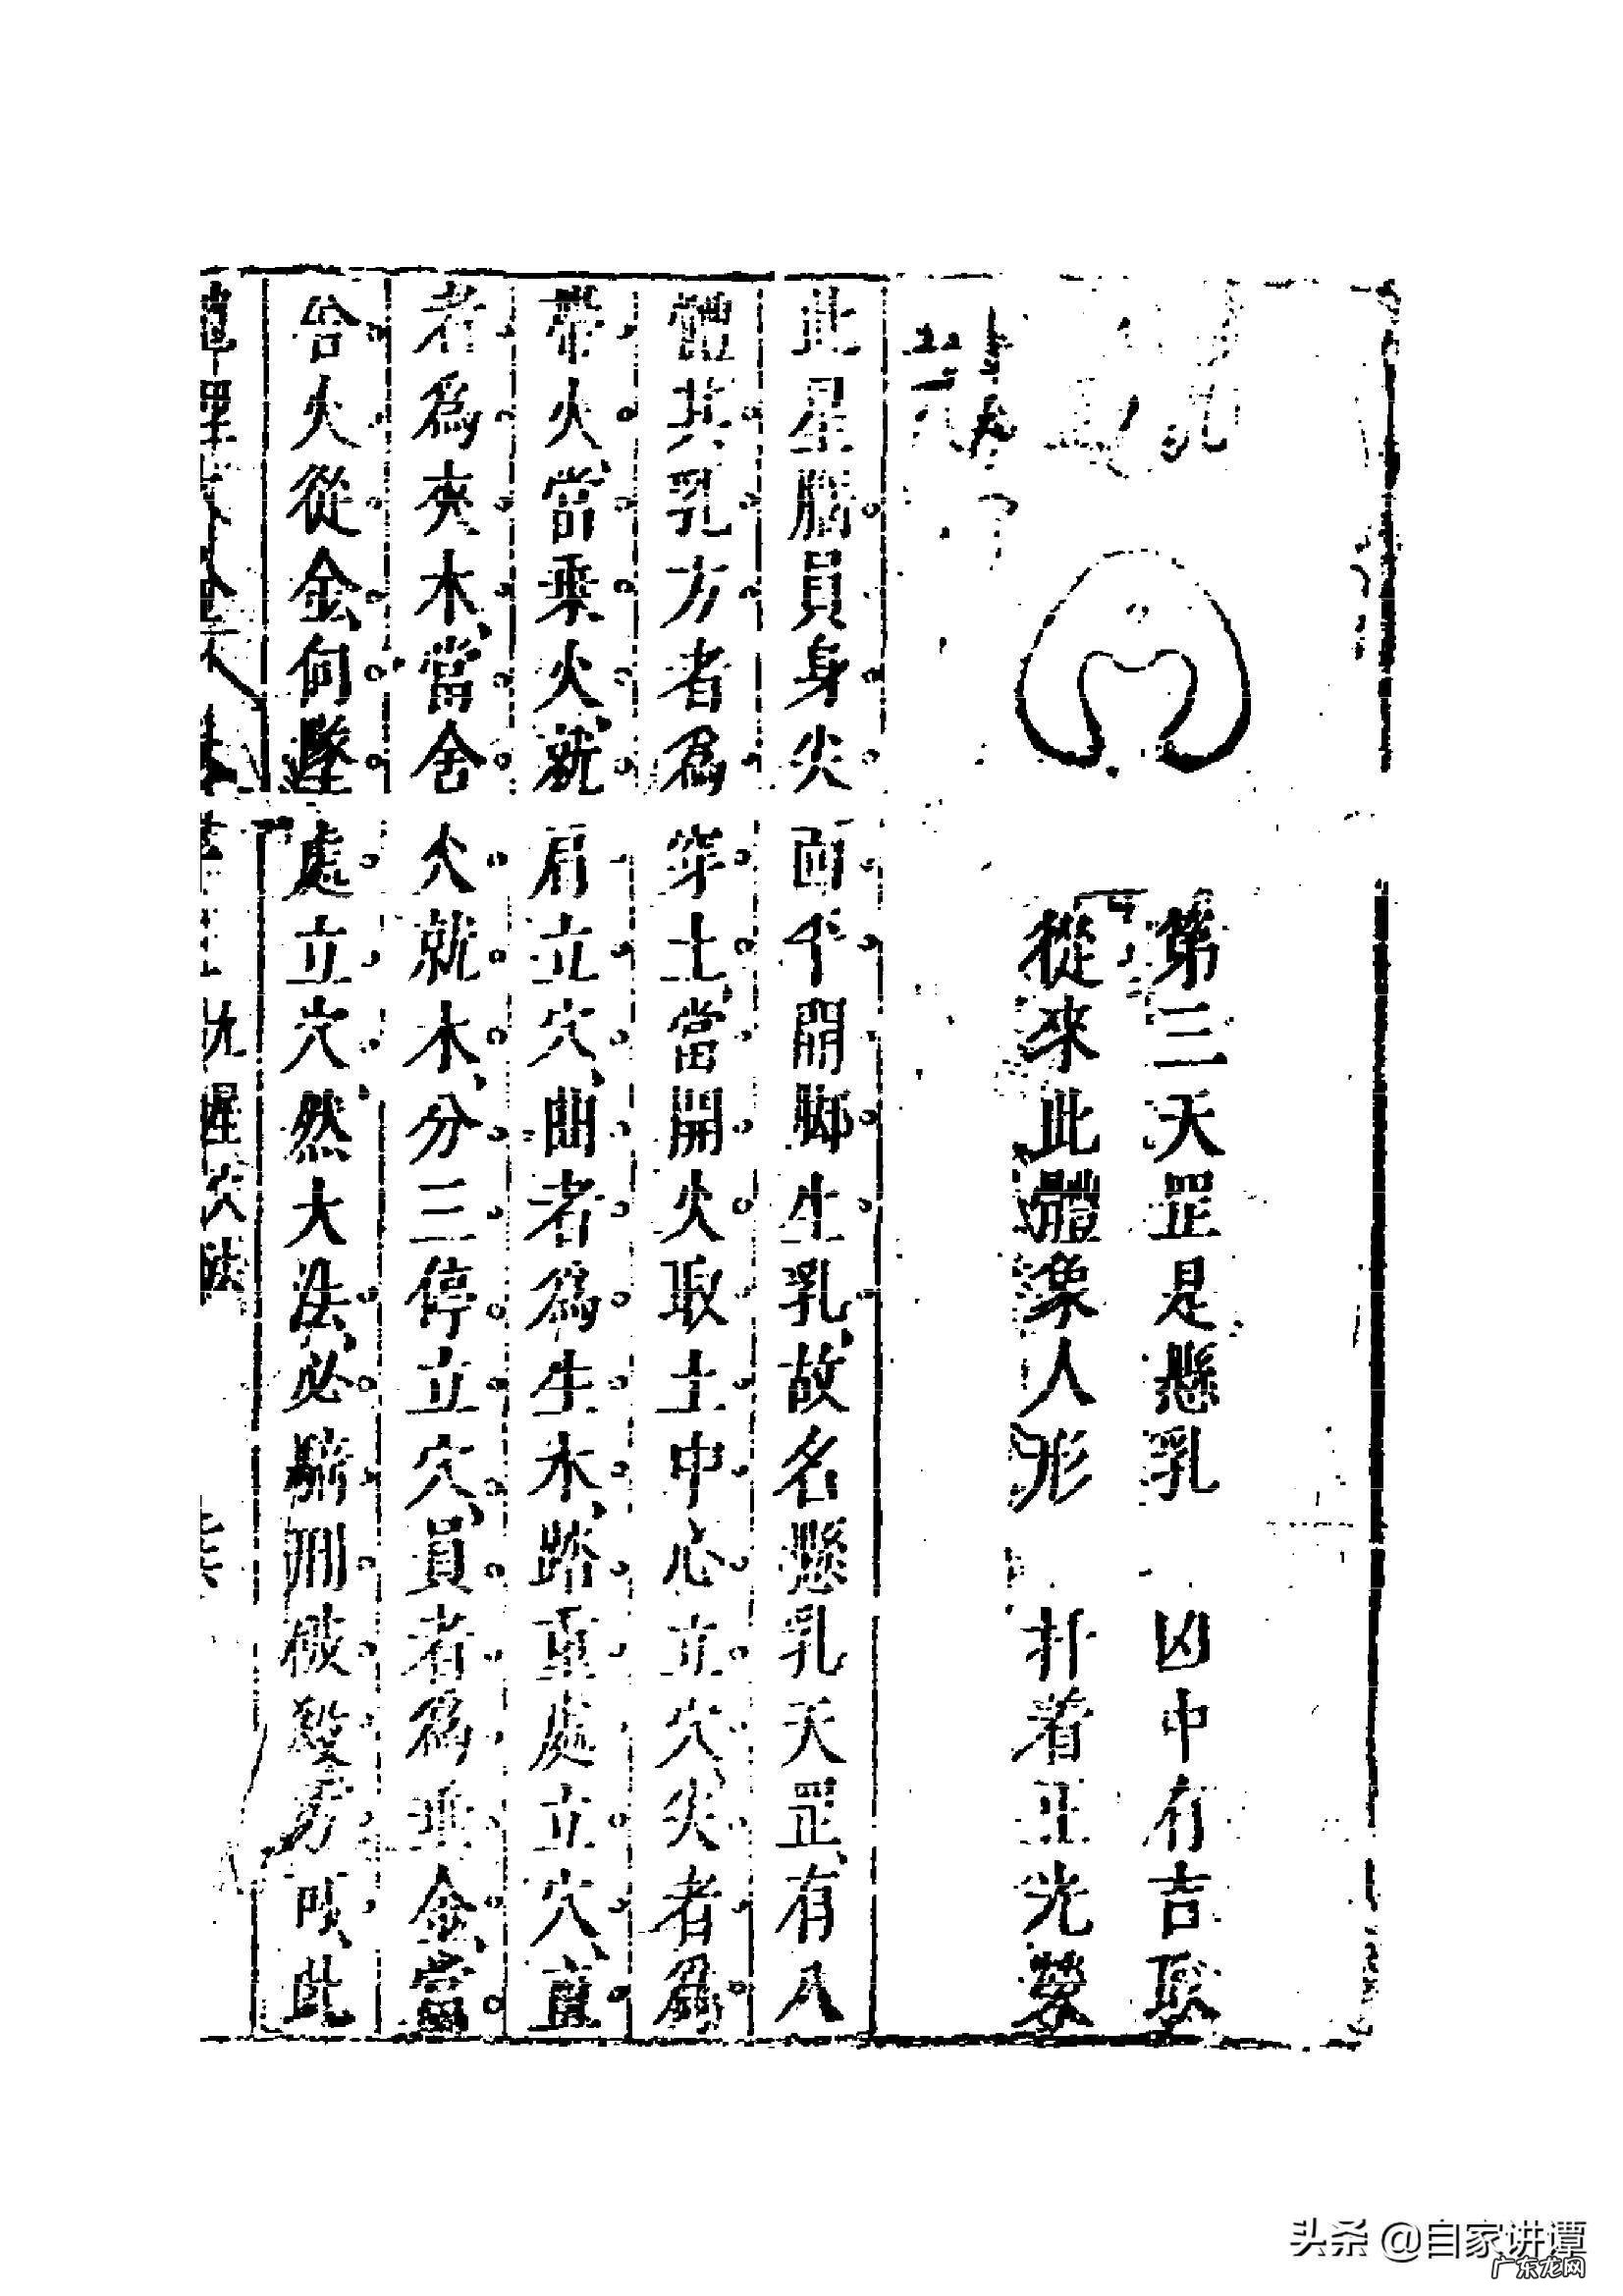 第三天罡是懸乳　凶中有吉取
從來此體象人形　扦着王光榮
此星腦員身尖面平開脚生乳故名懸乳天罡有八
體其乳方者爲穿土當開火取土中心立穴尖者爲
帶火當乘火就肩立穴曲者爲生木踏重處立穴直
者爲夾木當舍火就木分三停立穴員者爲垂金當
合火從金向墜處立穴然大法必騎刑破殺方可此
頭条 @自家讲谭
广东龙网